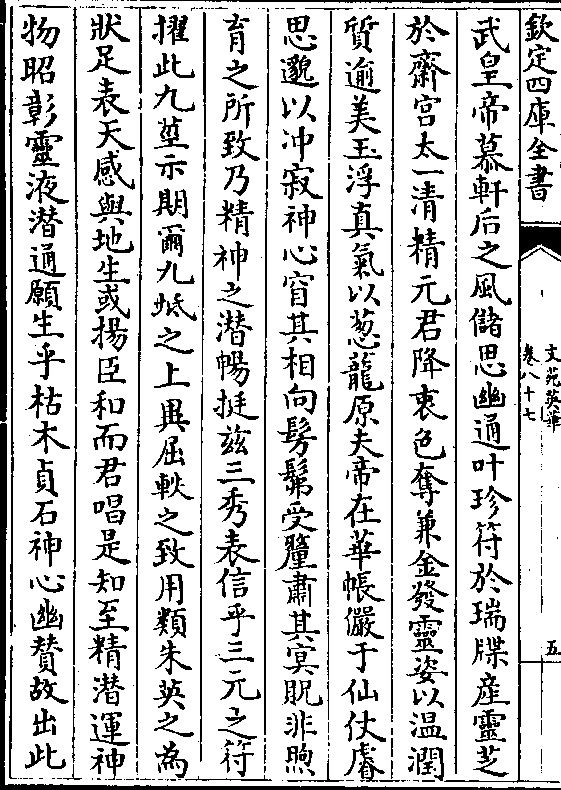 欽定四庫全書
文苑英華
卷八十七
五
武皇帝慕軒后之風儲思幽通叶珍符於瑞牒産靈芝
於齋宫太一清精元君降衷色奪兼金發靈姿以温潤
質逾美玉浮真氣以葱蘢原夫帝在華帳儼于仙仗睿
思邈以冲寂神心窅其相向髣髴受釐肅其冥貺非煦
育之所致乃精神之潜暢挺兹三秀表信乎三元之符
擢此九莖示期爾九坻之上興屈軼之致用類朱英之為
狀足表天感與地生或揚臣和而君唱是知至精潜運神
物昭彰靈液潜通願生乎枯木貞石神心幽賛故出此